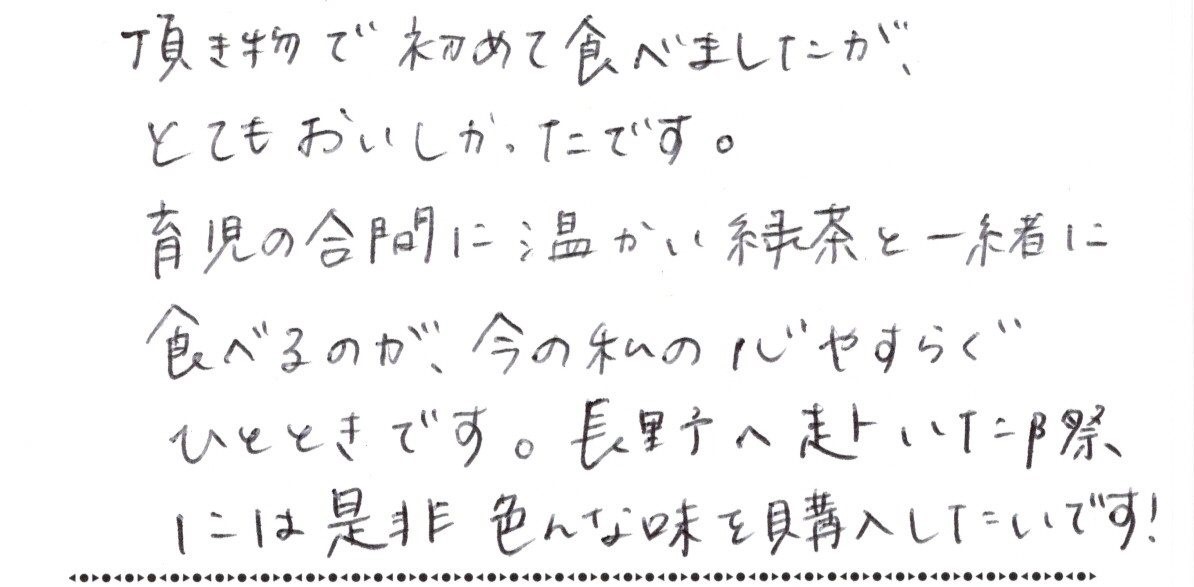 頂き物で初めて食べましたが、
とてもおいしかったです。
育児の合間に温かい緑茶と一緒に
食べるのが、今の私の心やすらぐ
ひとときです。長野へ赴いた際
には是非色んな味を購入したいです!